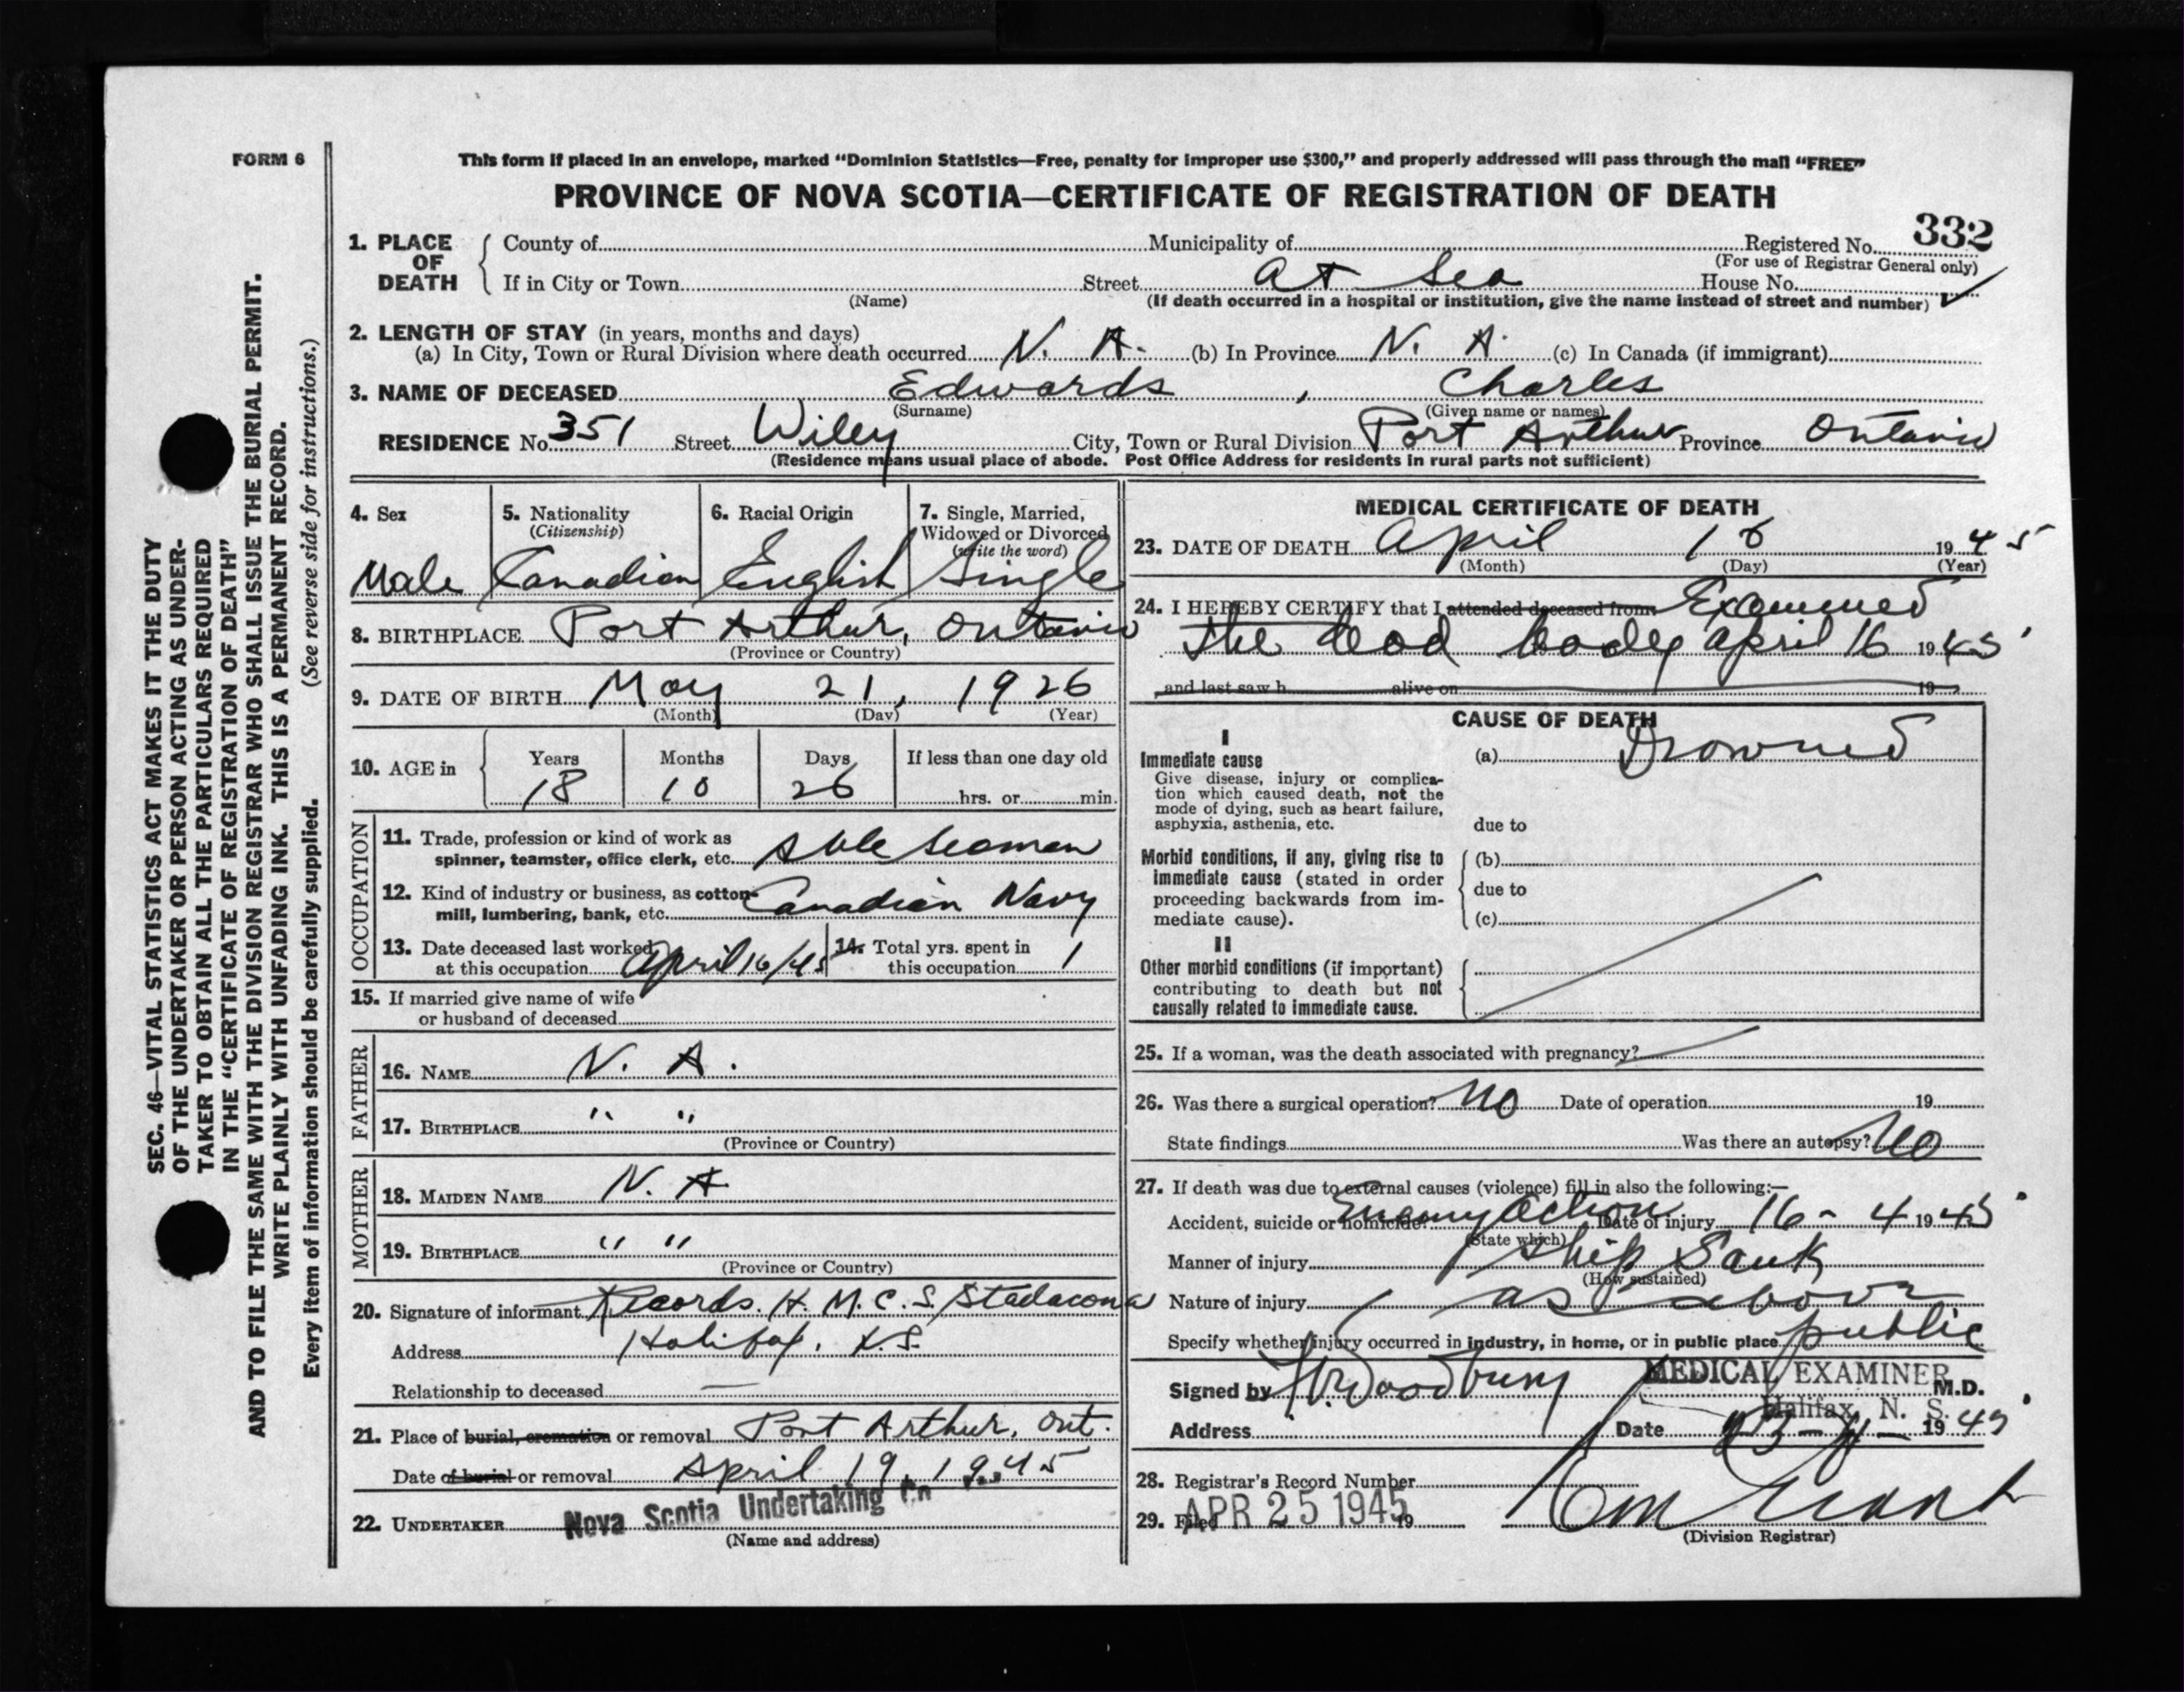 FORM 6
This form if placed in an envelope, marked “Dominion Statistics—Free, penalty for improper use $300,” and properly addressed will pass through the mail “FREE”
PROVINCE OF NOVA SCOTIA—CERTIFICATE OF REGISTRATION OF DEATH
332
1. PLACE OF DEATH
County of Municipality of Registered No.
(For use of Registrar General only)
If in City or Town Street At Sea House No.
(Name) (If death occurred in a hospital or institution, give the name instead of street and number)
2. LENGTH OF STAY (in years, months and days)
(a) In City, Town or Rural Division where death occurred N. A. (b) In Province N. A. (c) In Canada (if immigrant)
3. NAME OF DECEASED Edwards, Charles
(Surname) (Given name or names)
RESIDENCE No. 351 Street Wiley City, Town or Rural Division Port Arthur Province Ontario
(Residence means usual place of abode. Post Office Address for residents in rural parts not sufficient)
4. Sex
Male
5. Nationality
(Citizenship)
Canadian
6. Racial Origin
English
7. Single, Married,
Widowed or Divorced
(write the word)
Single
8. BIRTHPLACE Port Arthur, Ontario
(Province or Country)
9. DATE OF BIRTH May 21, 1926
(Month) (Day) (Year)
10. AGE in
Years Months Days If less than one day old
18 10 26 hrs. or min.
OCCUPATION
11. Trade, profession or kind of work as
spinner, teamster, office clerk, etc. Able Seaman
12. Kind of industry or business, as cotton
mill, lumbering, bank, etc. Canadian Navy
13. Date deceased last worked
at this occupation April 16/45
14. Total yrs. spent in
this occupation 1
15. If married give name of wife
or husband of deceased
FATHER
16. NAME N. A.
17. BIRTHPLACE " "
(Province or Country)
MOTHER
18. MAIDEN NAME N. A.
19. BIRTHPLACE " "
(Province or Country)
20. Signature of informant Records. H. M. C. S. Stadacona
Address Halifax, N.S.
Relationship to deceased —
21. Place of burial, cremation or removal Port Arthur, Ont.
Date of burial or removal April 19, 1945
22. UNDERTAKER Nova Scotia Undertaking Co
(Name and address)
MEDICAL CERTIFICATE OF DEATH
23. DATE OF DEATH April 16 1945
(Month) (Day) (Year)
24. I HEREBY CERTIFY that I attended deceased from Examined
the dead body April 16 1945
and last saw h alive on 19
CAUSE OF DEATH
I
Immediate cause
Give disease, injury or complica-
tion which caused death, not the
mode of dying, such as heart failure,
asphyxia, asthenia, etc.
(a) Drowned
due to
Morbid conditions, if any, giving rise to
immediate cause (stated in order
proceeding backwards from im-
mediate cause).
(b)
due to
(c)
II
Other morbid conditions (if important)
contributing to death but not
causally related to immediate cause.
25. If a woman, was the death associated with pregnancy?
26. Was there a surgical operation? No Date of operation 19
State findings Was there an autopsy? No
27. If death was due to external causes (violence) fill in also the following:—
Accident, suicide or homicide Enemy Action Date of injury 16 - 4 1945
(State which)
Manner of injury Ship Sank
(How sustained)
Nature of injury as above
Specify whether injury occurred in industry, in home, or in public place public
Signed by Woodbury MEDICAL EXAMINER M.D.
Halifax, N. S.
Address Date 1945
28. Registrar's Record Number
29. Filed APR 25 1945 19
(Division Registrar)
SEC. 46—VITAL STATISTICS ACT MAKES IT THE DUTY
OF THE UNDERTAKER OR PERSON ACTING AS UNDER-
TAKER TO OBTAIN ALL THE PARTICULARS REQUIRED
IN THE “CERTIFICATE OF REGISTRATION OF DEATH”
AND TO FILE THE SAME WITH THE DIVISION REGISTRAR WHO SHALL ISSUE THE BURIAL PERMIT.
WRITE PLAINLY WITH UNFADING INK. THIS IS A PERMANENT RECORD.
Every item of information should be carefully supplied. (See reverse side for instructions.)